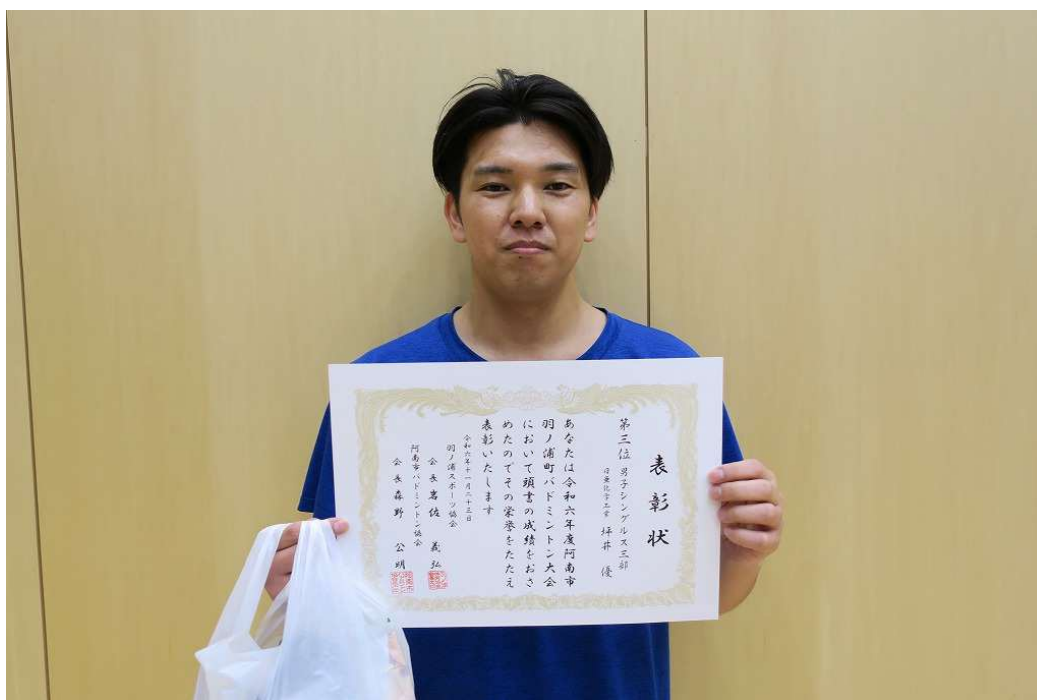 表彰状
第三位 男子シングルス三部
日亜化学工業 坪井 優
あなたは令和六年度阿南市
羽ノ浦町バドミントン大会
において頭書の成績をおさ
めたのでその栄誉をたたえ
表彰いたします
令和六年十一月二十三日
羽ノ浦スポーツ協会
会長 髙佐 義弘
阿南市バドミントン協会
会長 森野 公明